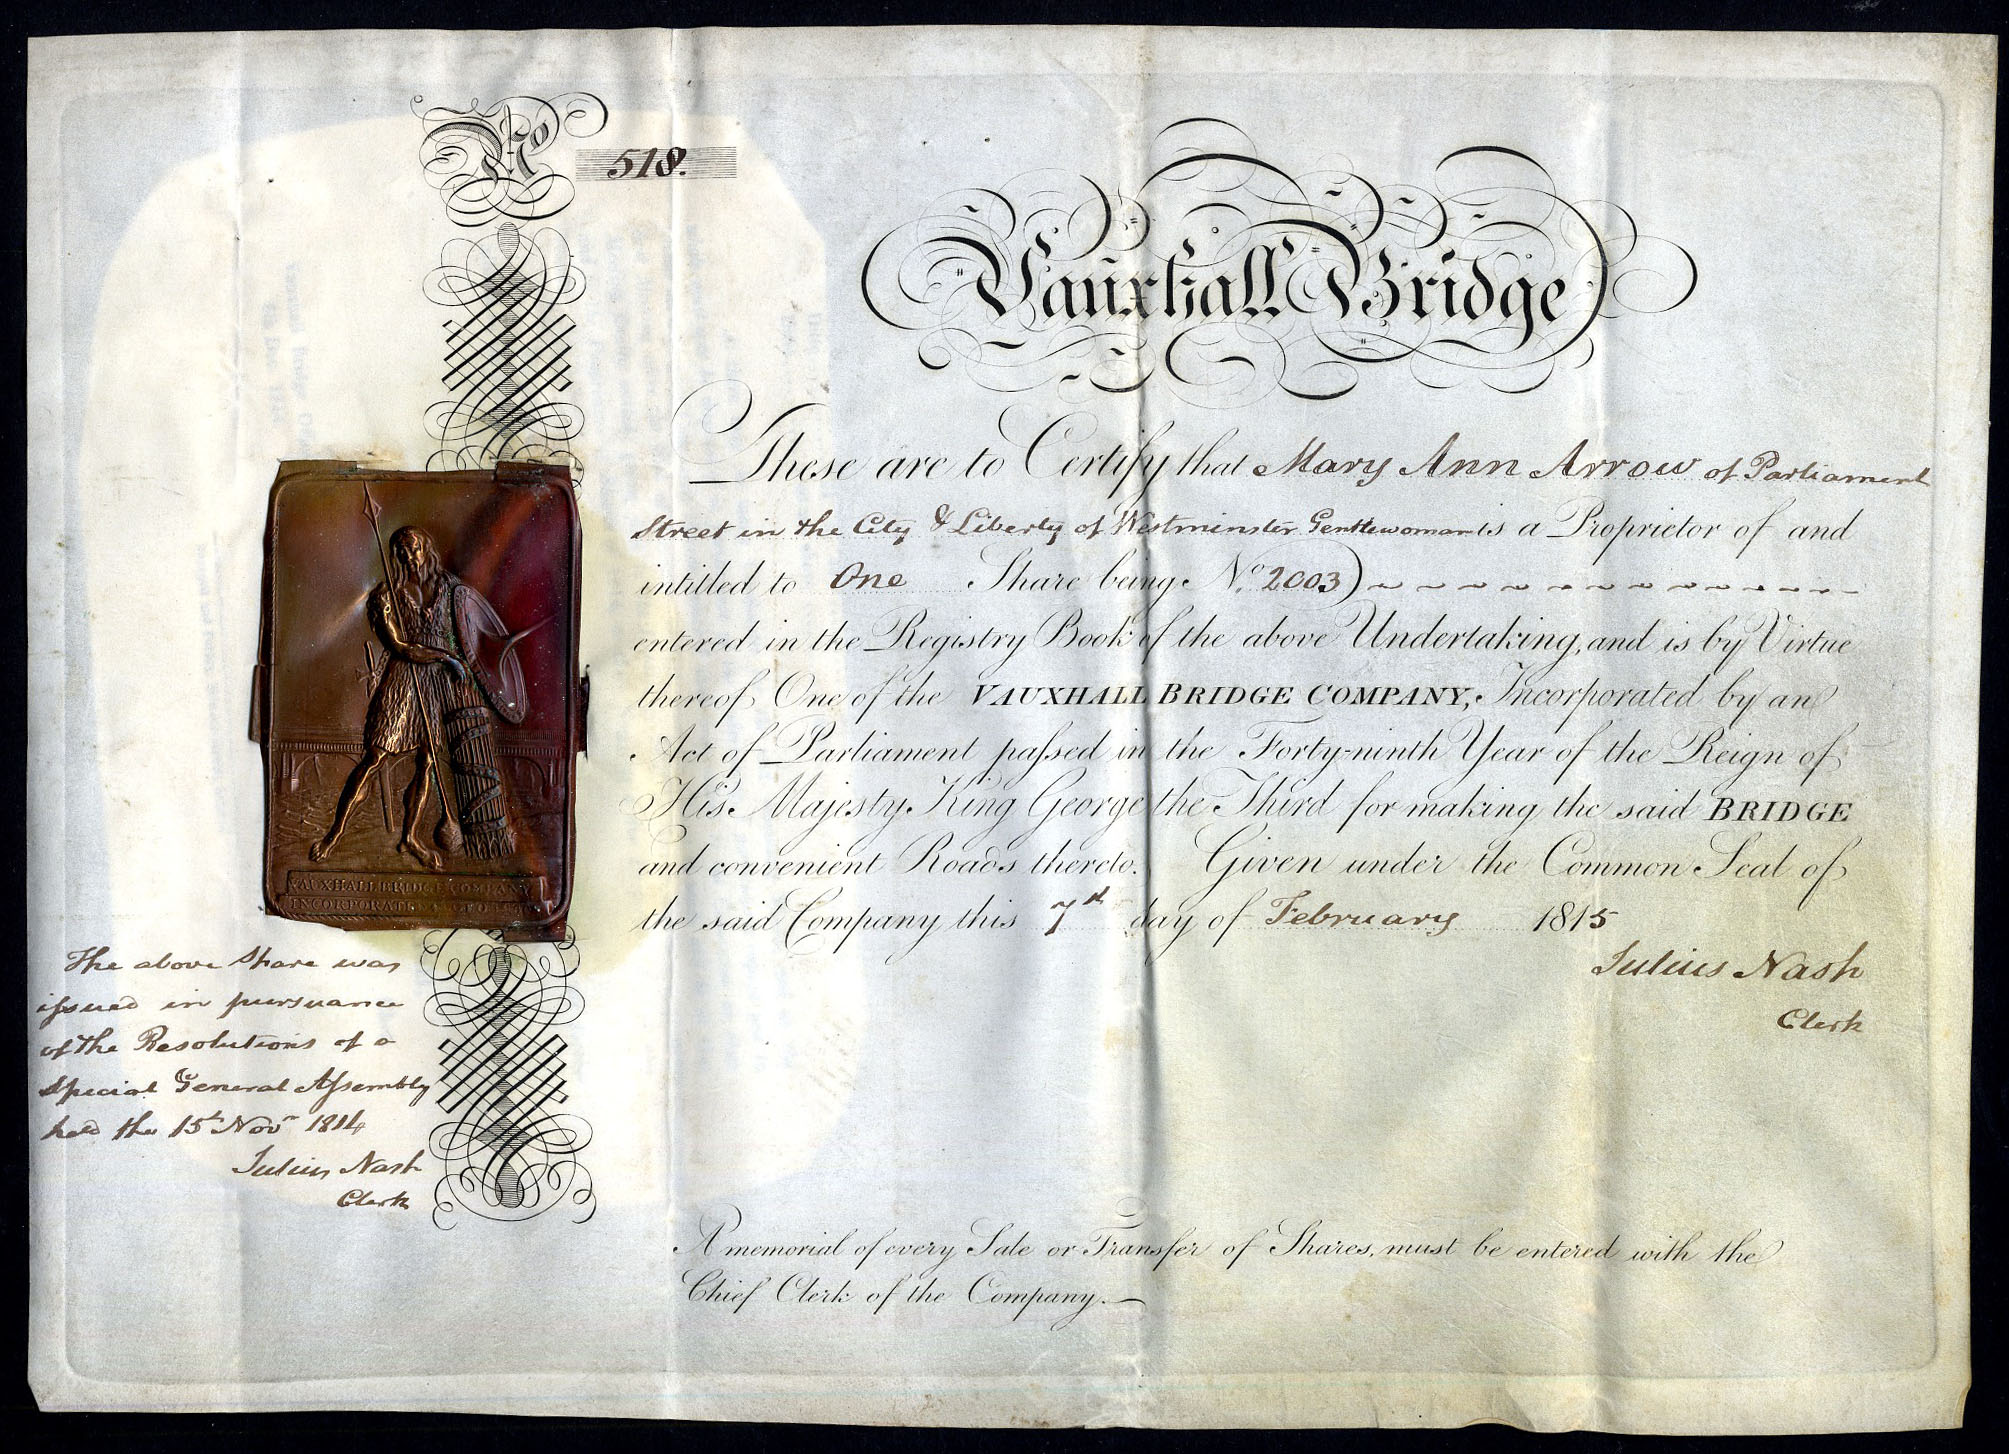 No 518.
Vauxhall Bridge
These are to Certify that Mary Ann Arrow of Parliament
Street in the City & Liberty of Westminster Gentlewoman is a Proprietor of and
intitled to One Share being No. 2003)
entered in the Registry Book of the above Undertaking, and is by Virtue
thereof One of the VAUXHALL BRIDGE COMPANY, Incorporated by an
Act of Parliament paſsed in the Forty-ninth Year of the Reign of
His Majesty King George the Third for making the said BRIDGE
and convenient Roads thereto. Given under the Common Seal of
the said Company this 7th day of February 1815
Julius Nash
Clerk
VAUXHALL BRIDGE COMPANY
The above Share was
iſsued in pursuance
of the Resolutions of a
Special General Aſsembly
held the 15th Novr 1814
Julius Nash
Clerk
A memorial of every Sale or Transfer of Shares, must be entered with the
Chief Clerk of the Company.